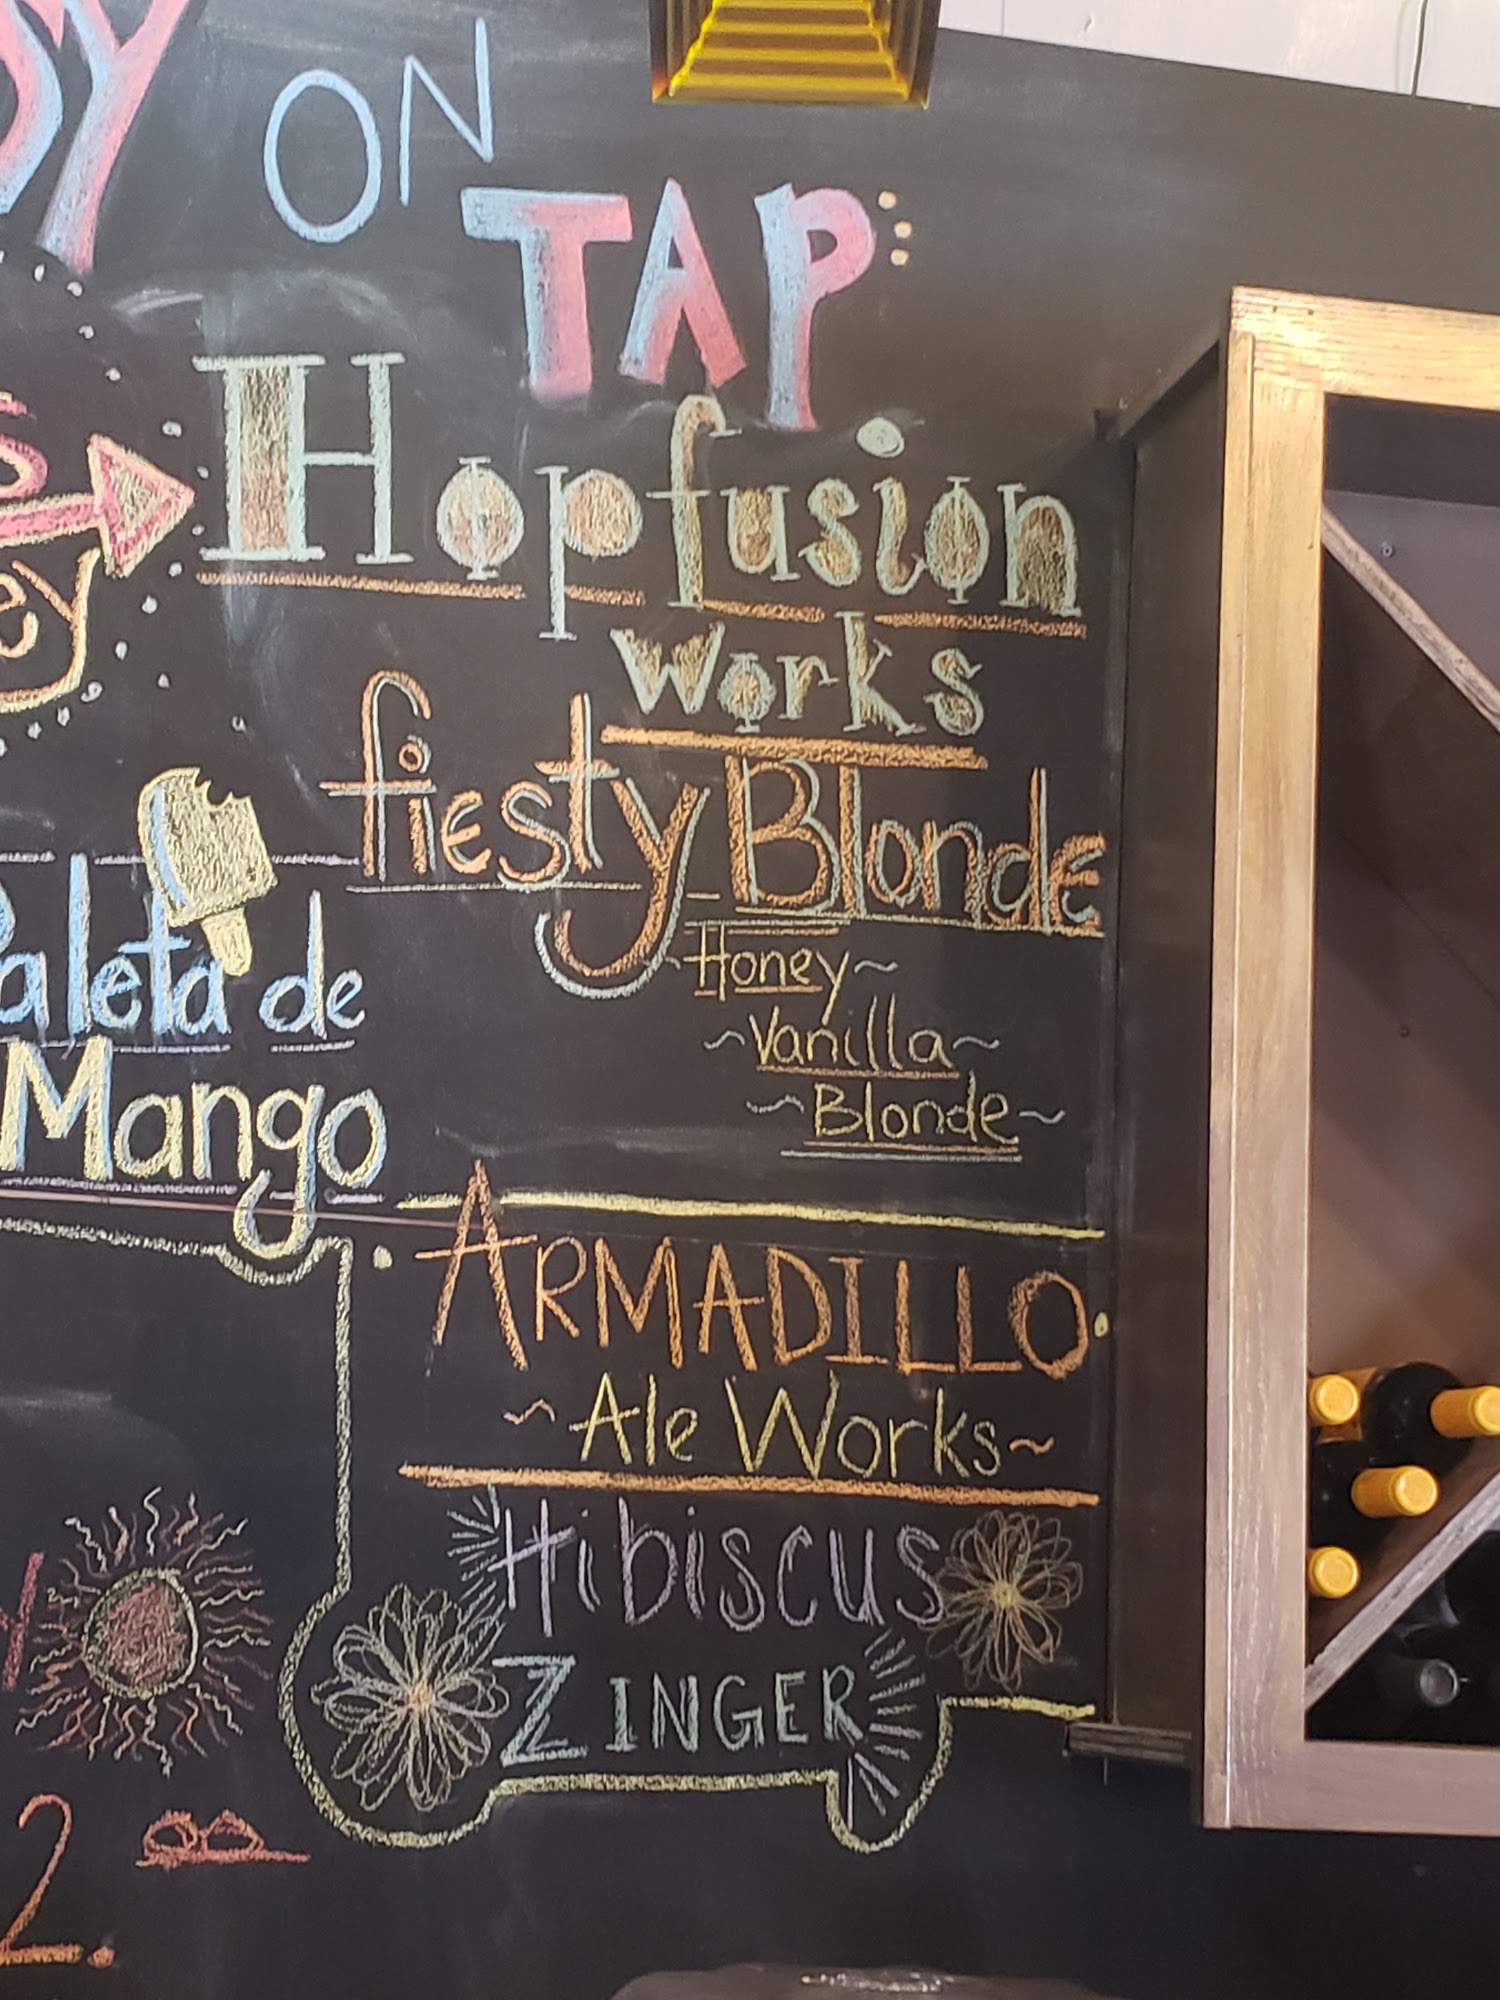 ON
TAP
Hopfusion
Works
fiesty Blonde
Honey
~Vanilla~
~Blonde~
Paleta de
Mango
ARMADILLO
~Ale Works~
Hibiscus
ZINGER
2.